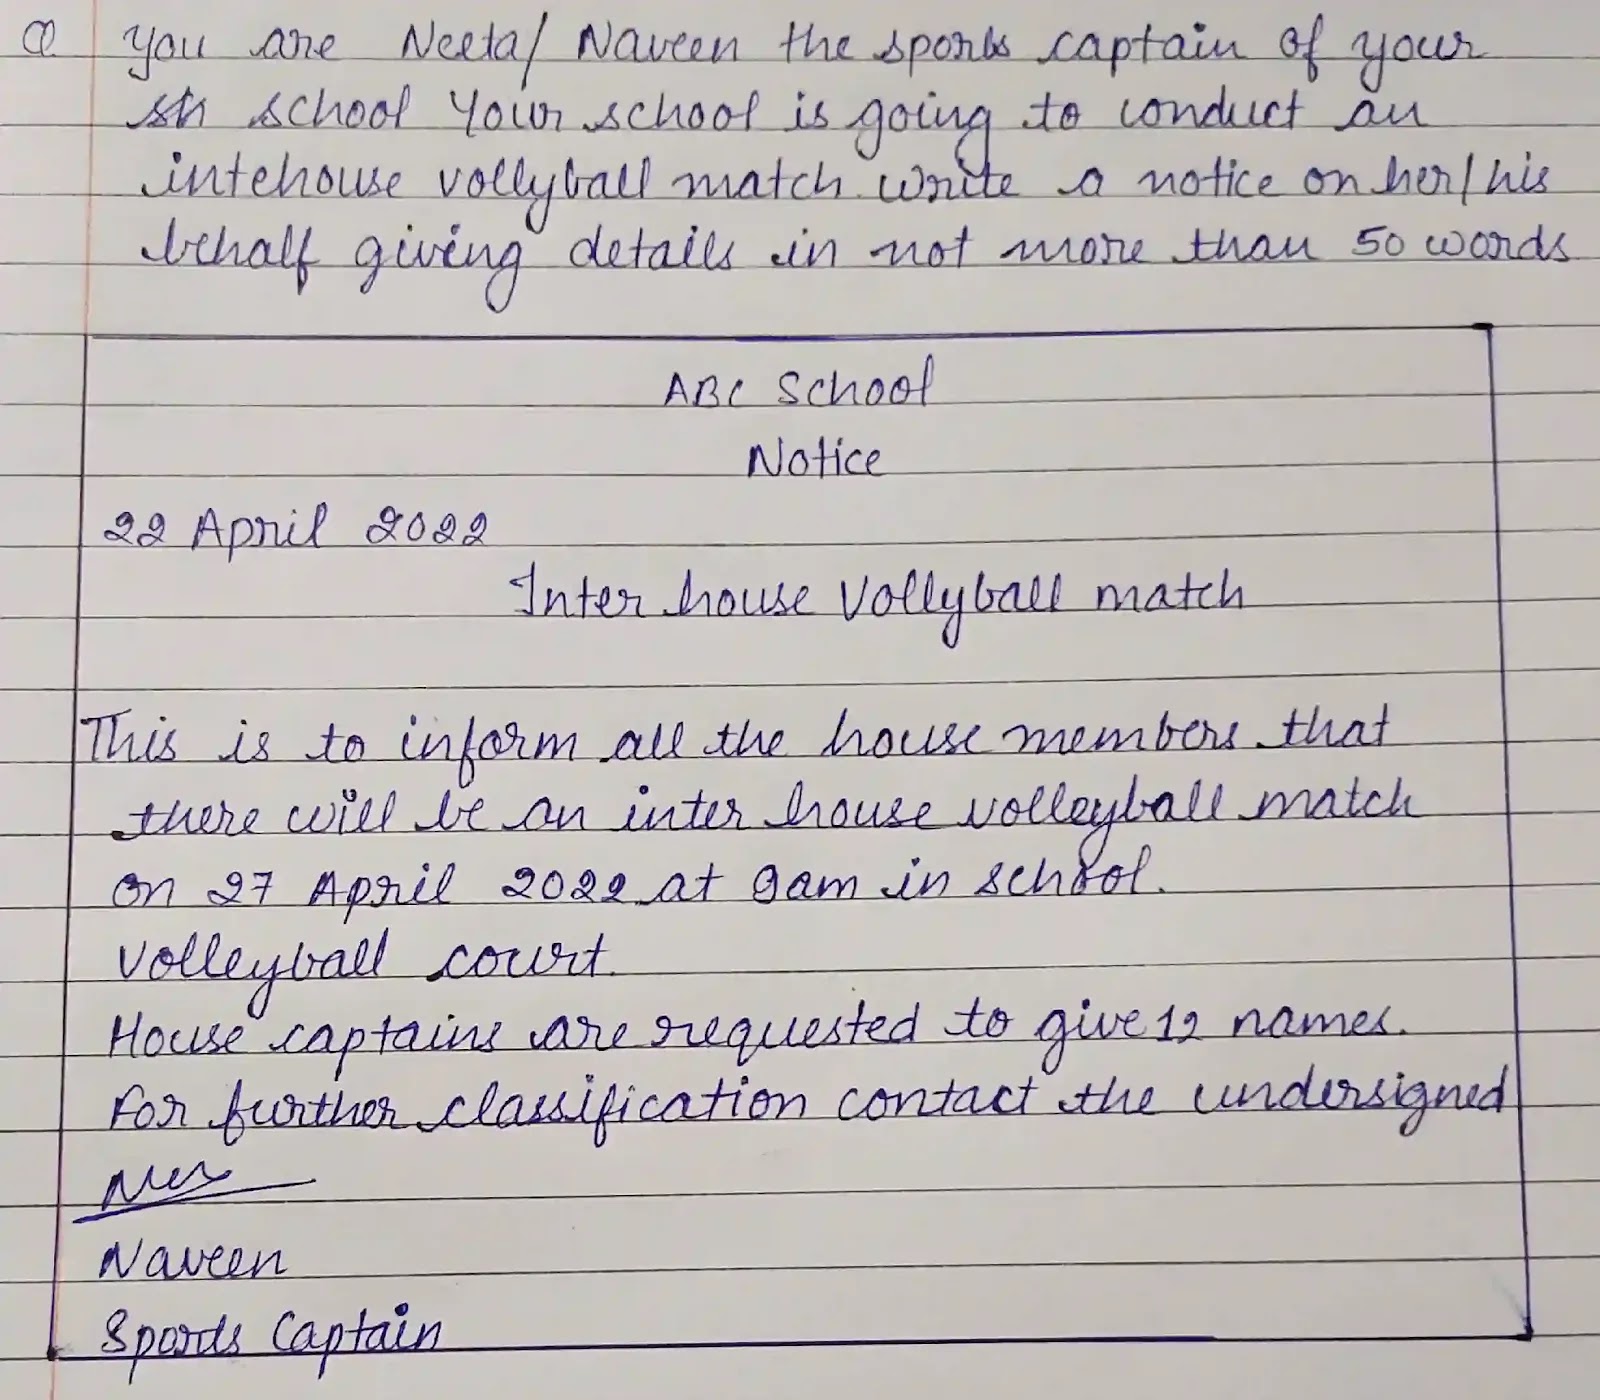 Q You are Neeta/ Naveen the sports captain of your
sh school Your school is going to conduct an
intehouse vollyball match. Write a notice on her/his
behalf giving details in not more than 50 words
ABC School
Notice
22 April 2022
Inter house Vollyball match
This is to inform all the house members that
there will be an inter house volleyball match
on 27 April 2022 at 9am in school.
Volleyball court.
House captains are requested to give 12 names.
For further classification contact the undersigned
Naveen
Sports Captain